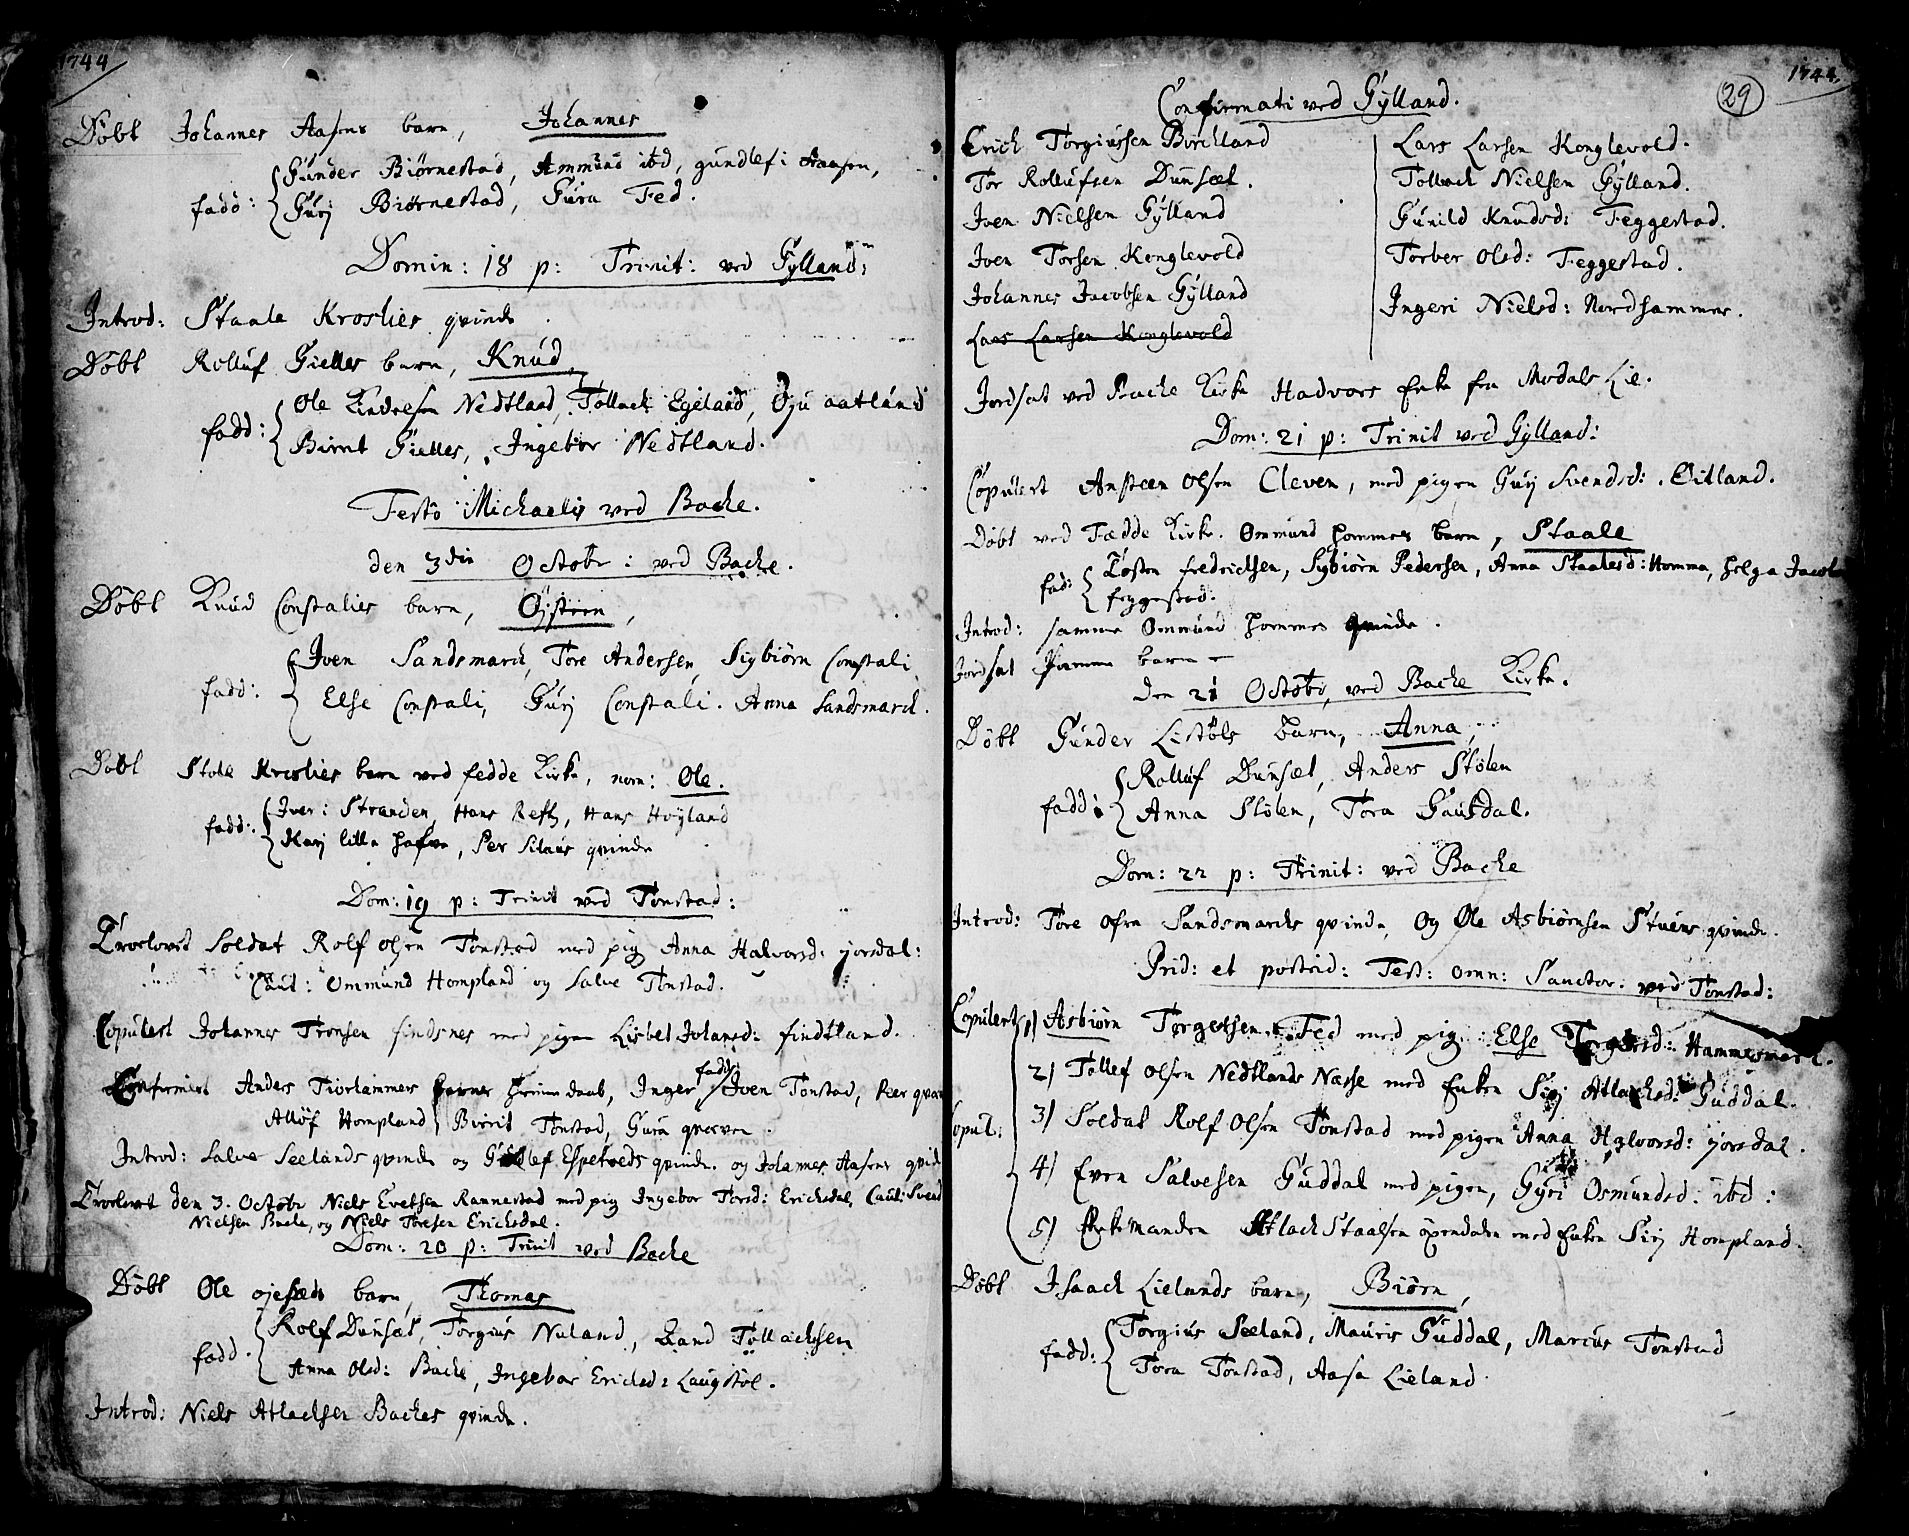 1744
Döbt Johannes Aasens barn, Johannes
fadd: Gunder Biørnestad, Ammund ibd, gundlef i Aaasen,
Gurj Biørnestad, Gura Fed.
Domin: 18 p: Trinit: ved Gylland:
Introd: Staale Kroslies qvinde.
Döbt Rolluf Gielles barn, Knud,
fadd: Ole Nedtland, Tollach Egeland, Öju aatland
Birnt Gielles, Ingebor Nedtland.
Festo Michaelis ved Backe.
den 3die Octobr: ved Backe.
Döbt Knud Constalies barn, Öjsteen,
fadd: Iven Sandsmarck, Tore Andersen, Sigbiörn Constali
Else Constali, Gurj Constali. Anna Sandsmarck.
Döbt Stole Kroslies barn ved fedde Kirke, nom: Ole.
fadd: Iver: Stranden, Hans Refk, Hans Höyland
Karj lille hafve, Per Silaus qvinde
Dom: 19 p: Trinit ved Tonstad:
Troelovet Soldat Rolf olsen Tonstad med pig Anna Halvorsd: josdal:
Caut: Ommund Hompland og Salve Tonstad.
Copulert Johannes Tronsen findsnes med pigen Lisbet Johansd: findtland.
Confirmert Anders Tiorhammer hiemme daab, Inger fadd: Iven Tonstad, Peer qvar
Allöf Hompland, Birrit Tonstad, Gura qverven.
Introd: Salve Seelands qvinde og Espetveds qvinde. og Johannes Aasens qvind
Troelovet den 3. Octobr Niels Evetsen Rannestad med pig Ingebor Torsd: Ericksdal, Caut: Svend
Nielsen Backe, og Niels Toresen Ericksdal.
Dom: 20 p: Trinit ved Backe
Döbt Ole barn, Thomas
fadd. Rolf Dunsæt, Torgius Nuland, Rand Tollachsen
Anna Olsd: Backe, Ingebor Ericksd: Laugstöl.
Introd: Niels Atlachsen Backes qvinde.
1744
29
Confirmati ved Gylland.
Erich Torgiussen Birckland
Tor Rollufsen Dunsæt.
Iven Nielsen Gylland
Iven Torsen Konglevold
Johannes Jacobsen Gylland
Lars Larsen Konglevold
Lars Larsen Konglevold.
Tollach Nielsen Gylland.
Gunild Knudsd: Feggestad.
Torber Olsd: Feggestad.
Ingeri Nielsd: Nordhammer.
Jordsat ved Backe Kirke Hadvors Enke fra Modals Lie.
Dom: 21 p: Trinit ved Gylland:
Copulert Ansteen Olsen Cleven, med pigen Gurj Svendsd: Eitland.
Döbt ved Fædde Kirke. Ommund Hommes barn, Staale
fad: Tosten fredricksen, Sigbiörn Pedersen, Anna Staalesd: Homma, Helga Jacobs
feggestad.
Introd: samme Ommund Hommes qvinde.
Jordsat samme barn
den 21 Octobr, ved Backe Kirke.
Döbt Gunder Listöls barn, Anna,
fadd: Rolluf Dunsæt, Anders Stölen
Anna Stölen, Tora Gausdal.
Dom: 22 p: Trinit: ved Backe
Introd: Tore ofre Sandsmarcks qvinde, og Ole Asbiörnsen Stuens qvinde.
Prid: et postrid: Fest: omn: Sanctor: ved Tonstad:
Copulert 1) Asbiørn Torgersen Fed med pig: Else Torgersd: Hammersmarck.
2) Tollef Olsen Nedtlands Næsse med Enken Sirj Atlachsd: Guddal.
Copul: 3) Soldat Rolf Olsen Tonstad med pigen Anna Halvorsd: josdal.
4) Even Salvesen Guddal med pigen, Gyri Osmundsd: ibd:
5) Enkemanden Atlach Staalsen öxendalen med Enken Sirj Hompland.
Döbt Isaach Lielands barn, Biørn,
fadd: Torgius Seeland, Mauris Guddal, Marcus Tonstad
Tora Tonstad, Aasa Lieland.